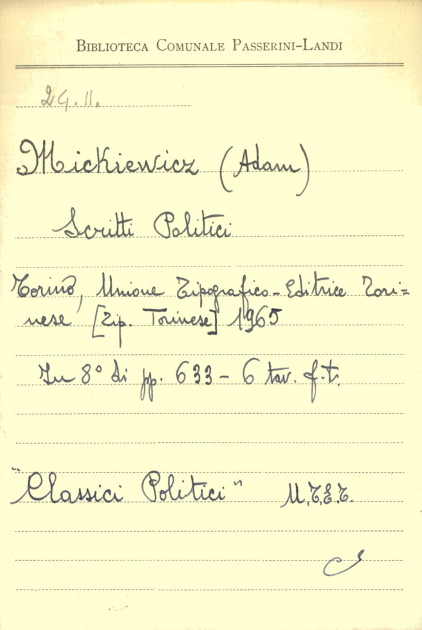 BIBLIOTECA COMUNALE PASSERINI-LANDI
2G.II.
Mickiewicz (Adam)
Scritti Politici
Torino, Unione Tipografico-Editrice Tori=
nese [Tip. Torinese] 1965
In 8° di pp. 633 - 6 tav. f.t.
"Classici Politici" U.T.E.T.